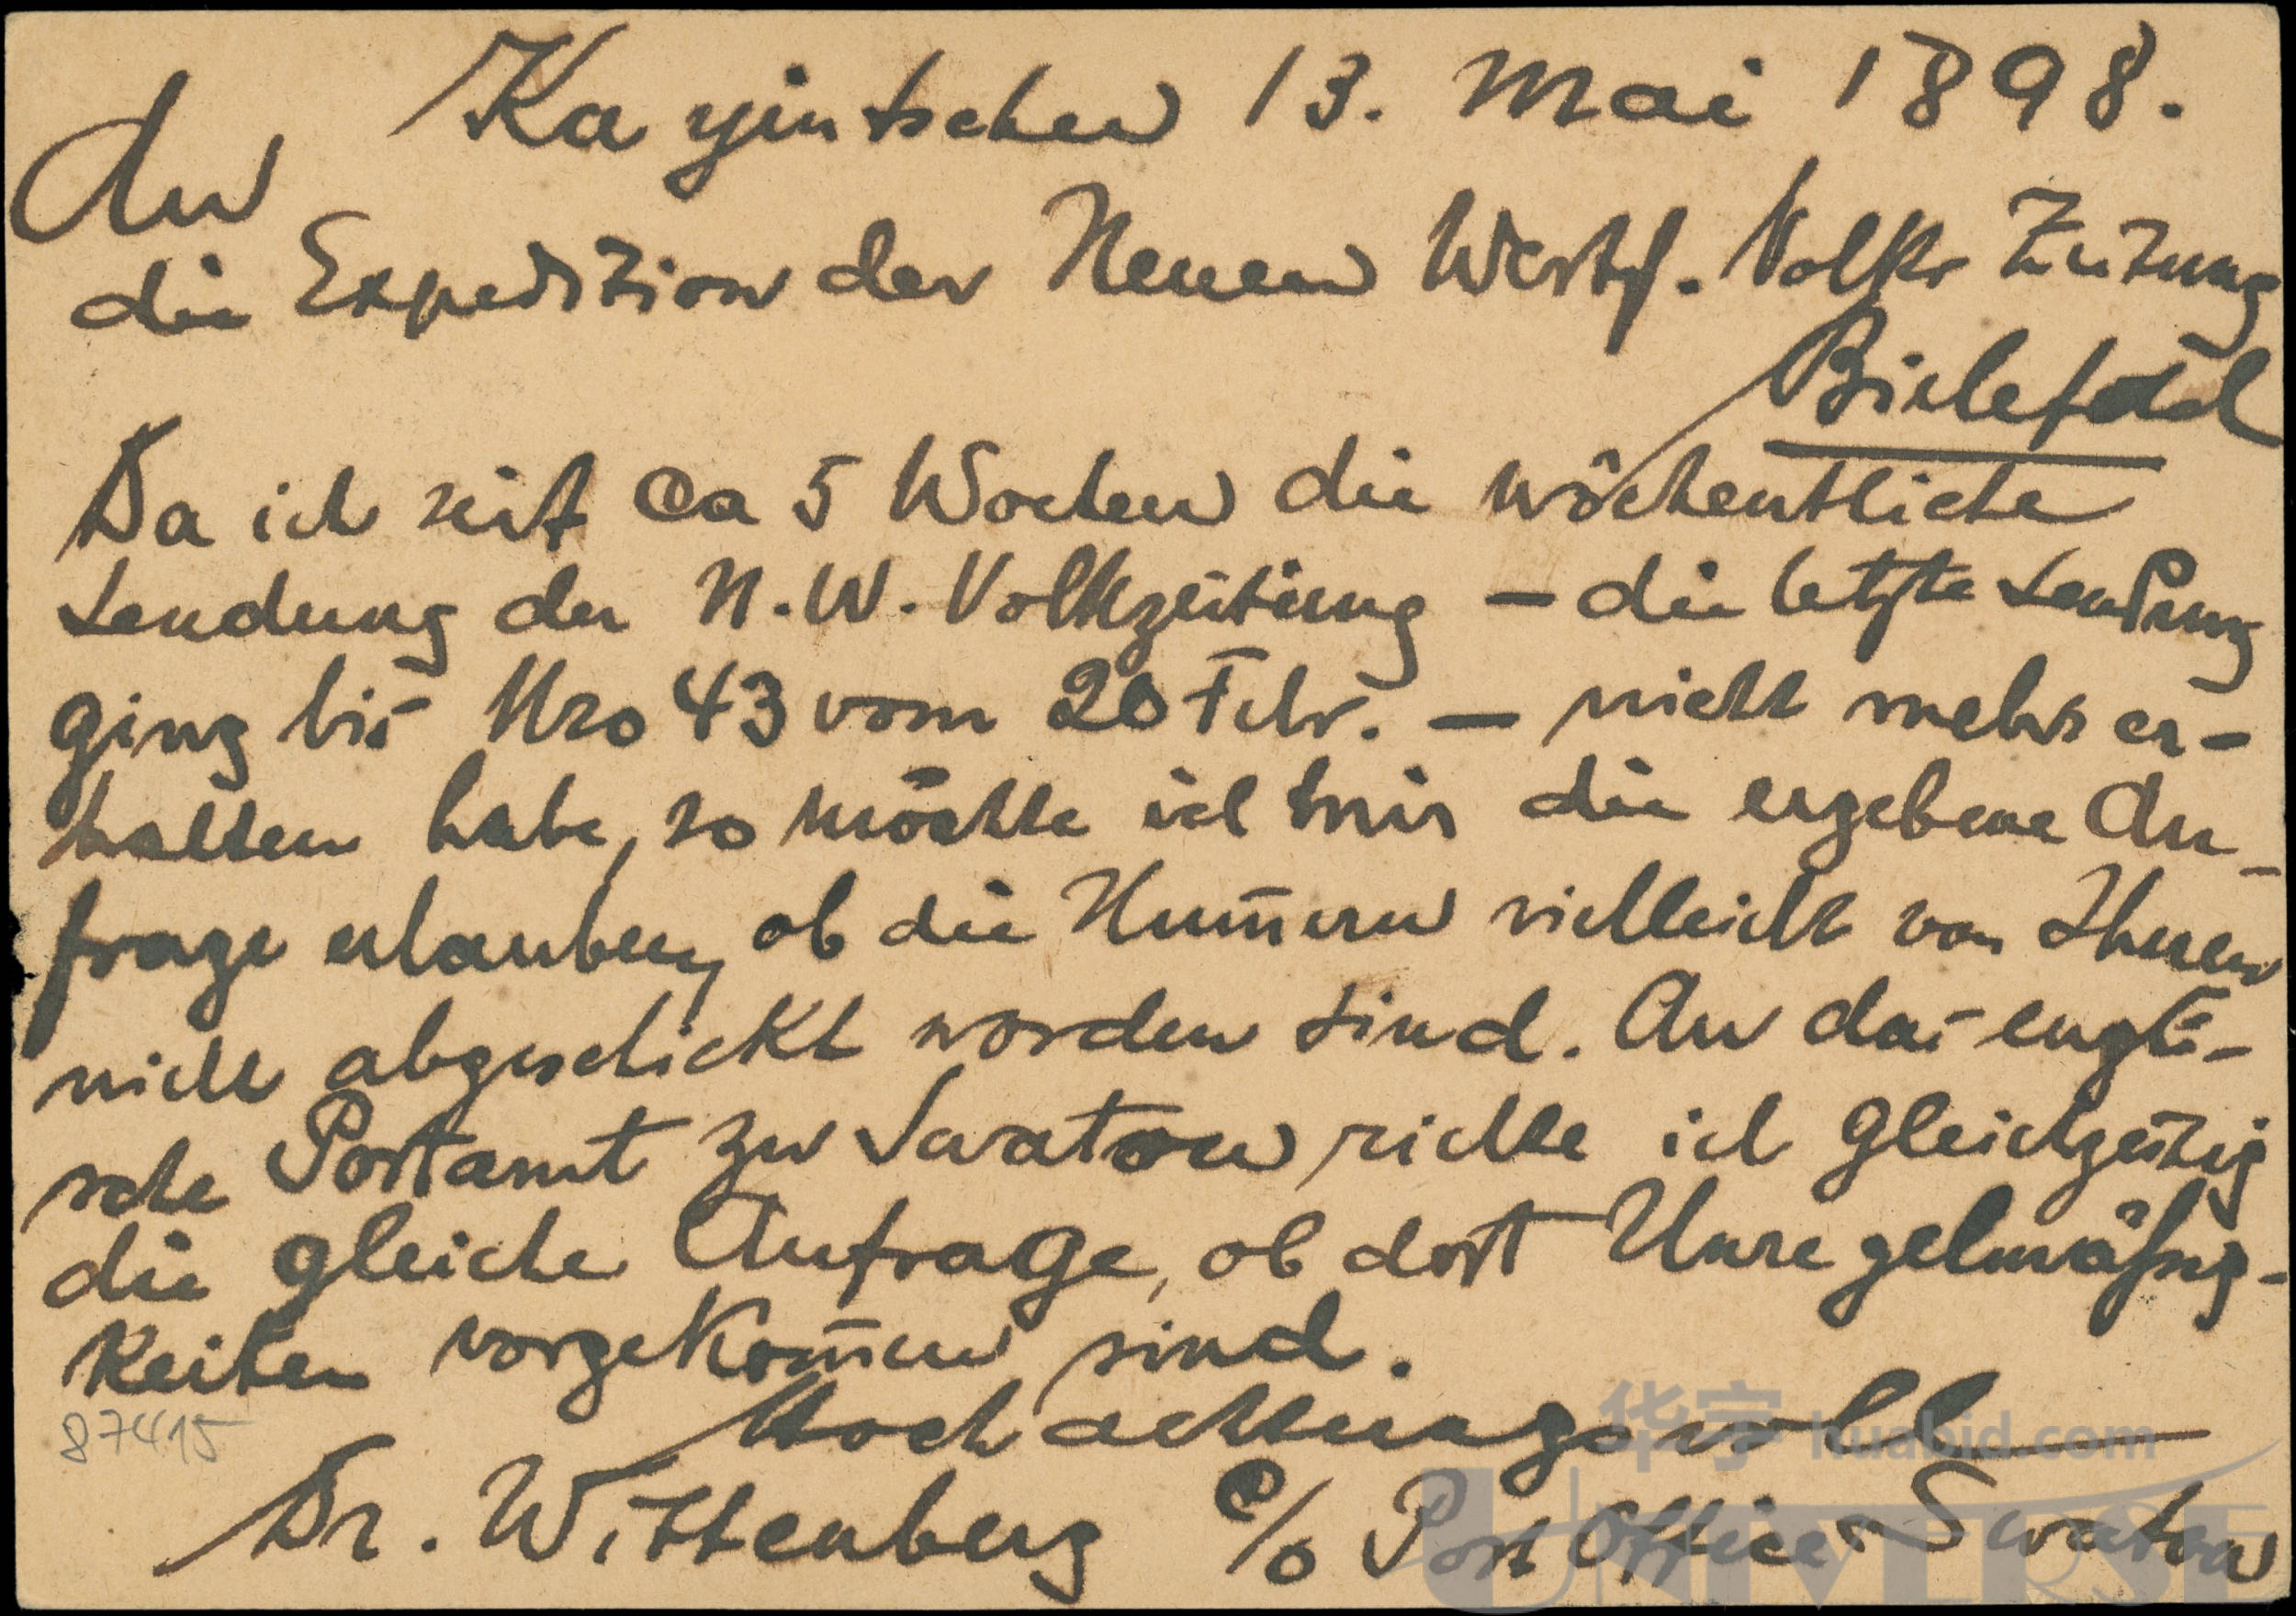 Kayintschu 13. Mai 1898.
An
die Expedition der Neuen Westf. Volks Zeitung
Bielefeld
Da ich seit ca 5 Wochen die wöchentliche
Sendung der N. W. Volkszeitung – die letzte Sendung
ging bis Nro 43 vom 20 Febr. – nicht mehr er-
halten habe, so möchte ich mir die ergebene An-
frage erlauben, ob die Num̄ern vielleicht von Ihnen
nicht abgeschickt worden sind. An das engli-
sche Postamt zu Swatow richte ich gleichzeitig
die gleiche Anfrage, ob dort Unregelmäßig-
keiten vorgekom̄en sind.
Hochachtungsvoll
87415
Dr. Wittenberg c/o Post Office Swatow
华宇 huabid.com
UNIVERSE